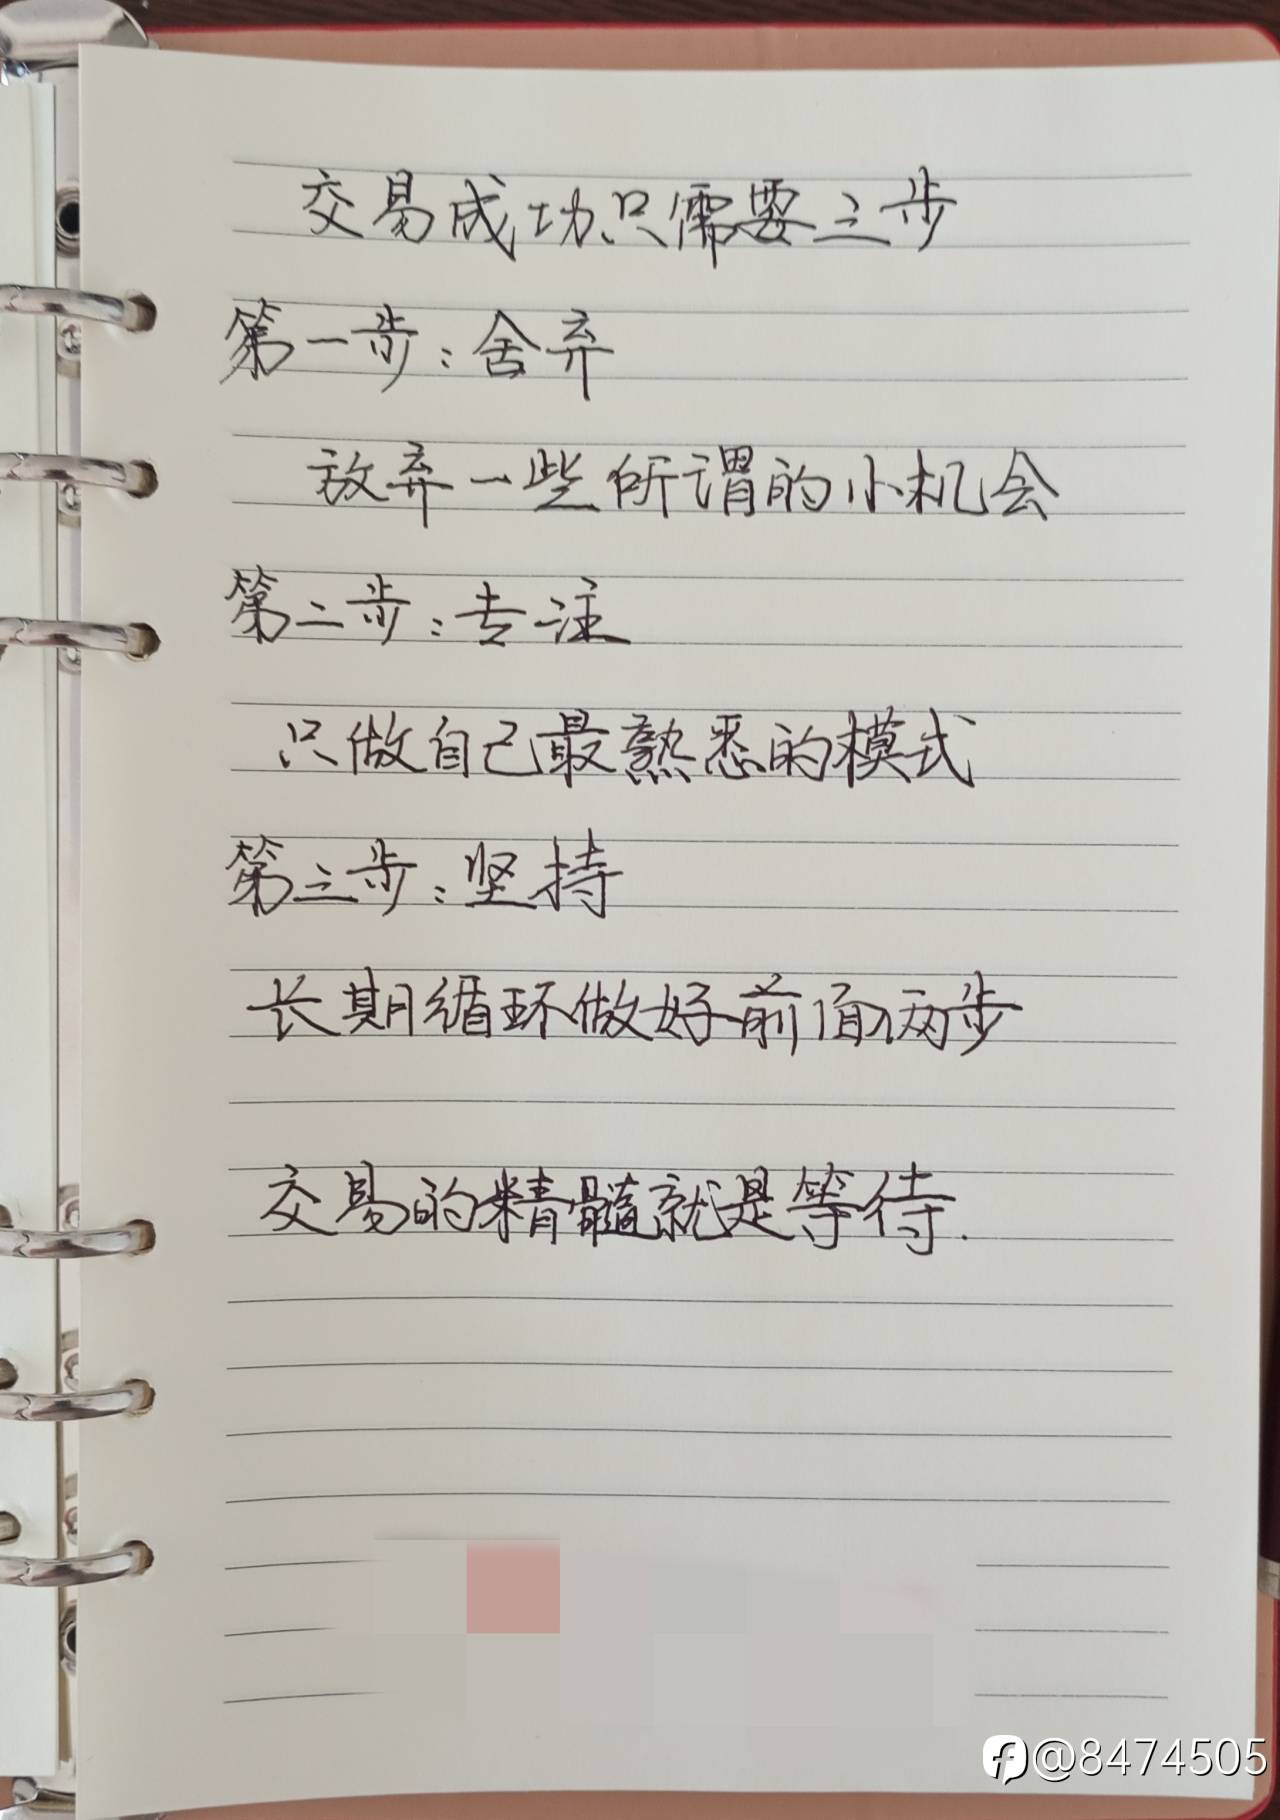 交易成功只需要三步
第一步：舍弃
放弃一些所谓的小机会
第二步：专注
只做自己最熟悉的模式
第三步：坚持
长期循环做好前面两步
交易的精髓就是等待.
@8474505